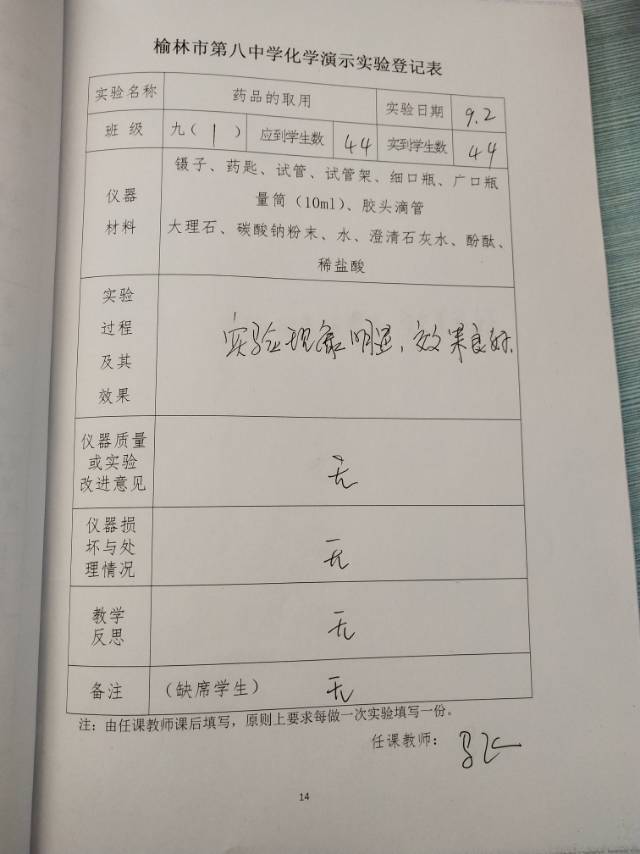 榆林市第八中学化学演示实验登记表
实验名称 药品的取用 实验日期 9.2
班 级 九( 1 ) 应到学生数 44 实到学生数 44
仪器
材料
镊子、药匙、试管、试管架、细口瓶、广口瓶
量筒（10ml）、胶头滴管
大理石、碳酸钠粉末、水、澄清石灰水、酚酞、
稀盐酸
实验
过程
及其
效果
实验现象明显，效果良好.
仪器质量
或实验
改进意见
无
仪器损
坏与处
理情况
无
教学
反思
无
备注 （缺席学生） 无
注：由任课教师课后填写，原则上要求每做一次实验填写一份。
任课教师：
14